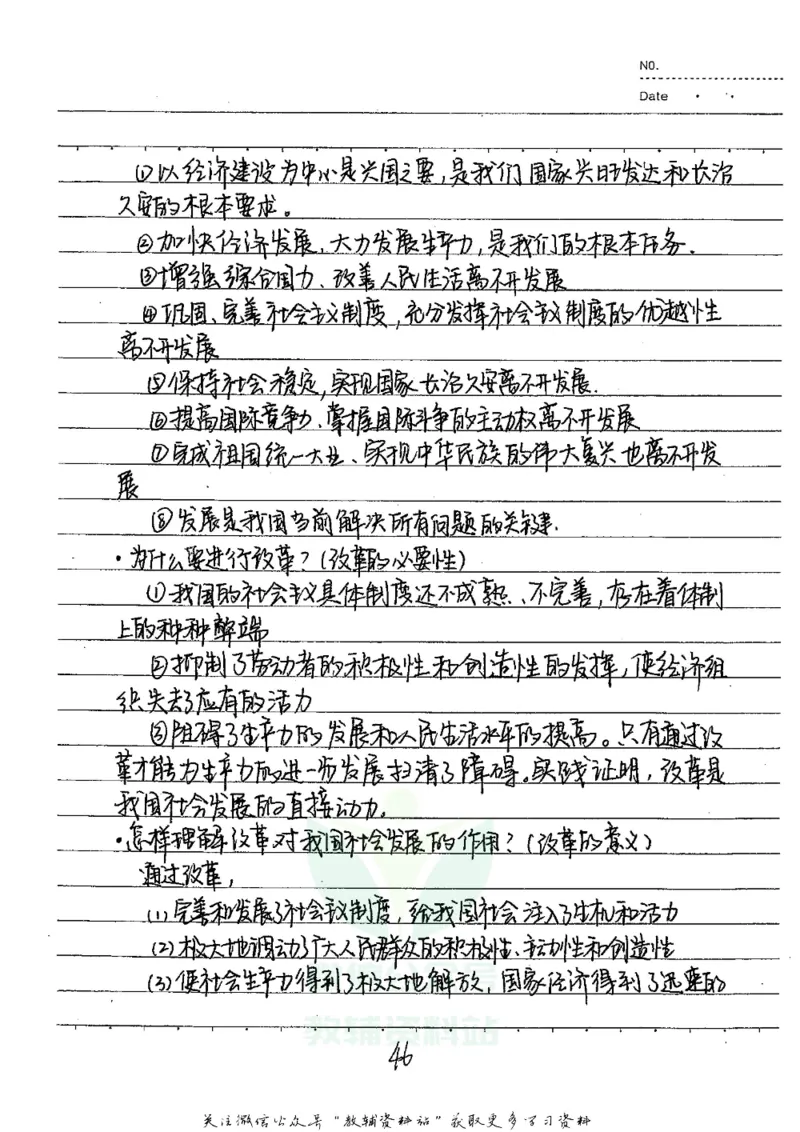 NO.
Date
①以经济建设为中心是兴国之要,是我们国家兴旺发达和长治
久安的根本要求。
②加快经济发展,大力发展生产力,是我们的根本任务.
③增强综合国力、改善人民生活离不开发展
④巩固、完善社会主义制度,充分发挥社会主义制度的优越性
离不开发展
⑤保持社会稳定,实现国家长治久安离不开发展.
⑥提高国际竞争力、掌握国际斗争的主动权离不开发展
⑦完成祖国统一大业、实现中华民族的伟大复兴也离不开发
展
⑧发展是我国当前解决所有问题的关键.
·为什么要进行改革?(改革的必要性)
①我国的社会主义具体制度还不成熟、不完善,存在着体制
上的种种弊端
②抑制了劳动者的积极性和创造性的发挥,使经济组
织失去了应有的活力
③阻碍了生产力的发展和人民生活水平的提高。只有通过改
革才能为生产力的进一步发展扫清了障碍。实践证明,改革是
我国社会发展的直接动力。
·怎样理解改革对我国社会发展的作用?(改革的意义)
通过改革,
(1)完善和发展了社会主义制度,给我国社会注入了生机和活力
(2)极大地调动了广大人民群众的积极性、主动性和创造性
(3)使社会生产力得到了极大地解放,国家经济得到了迅速的
教辅资料站
46
关注微信公众号"教辅资料站"获取更多学习资料